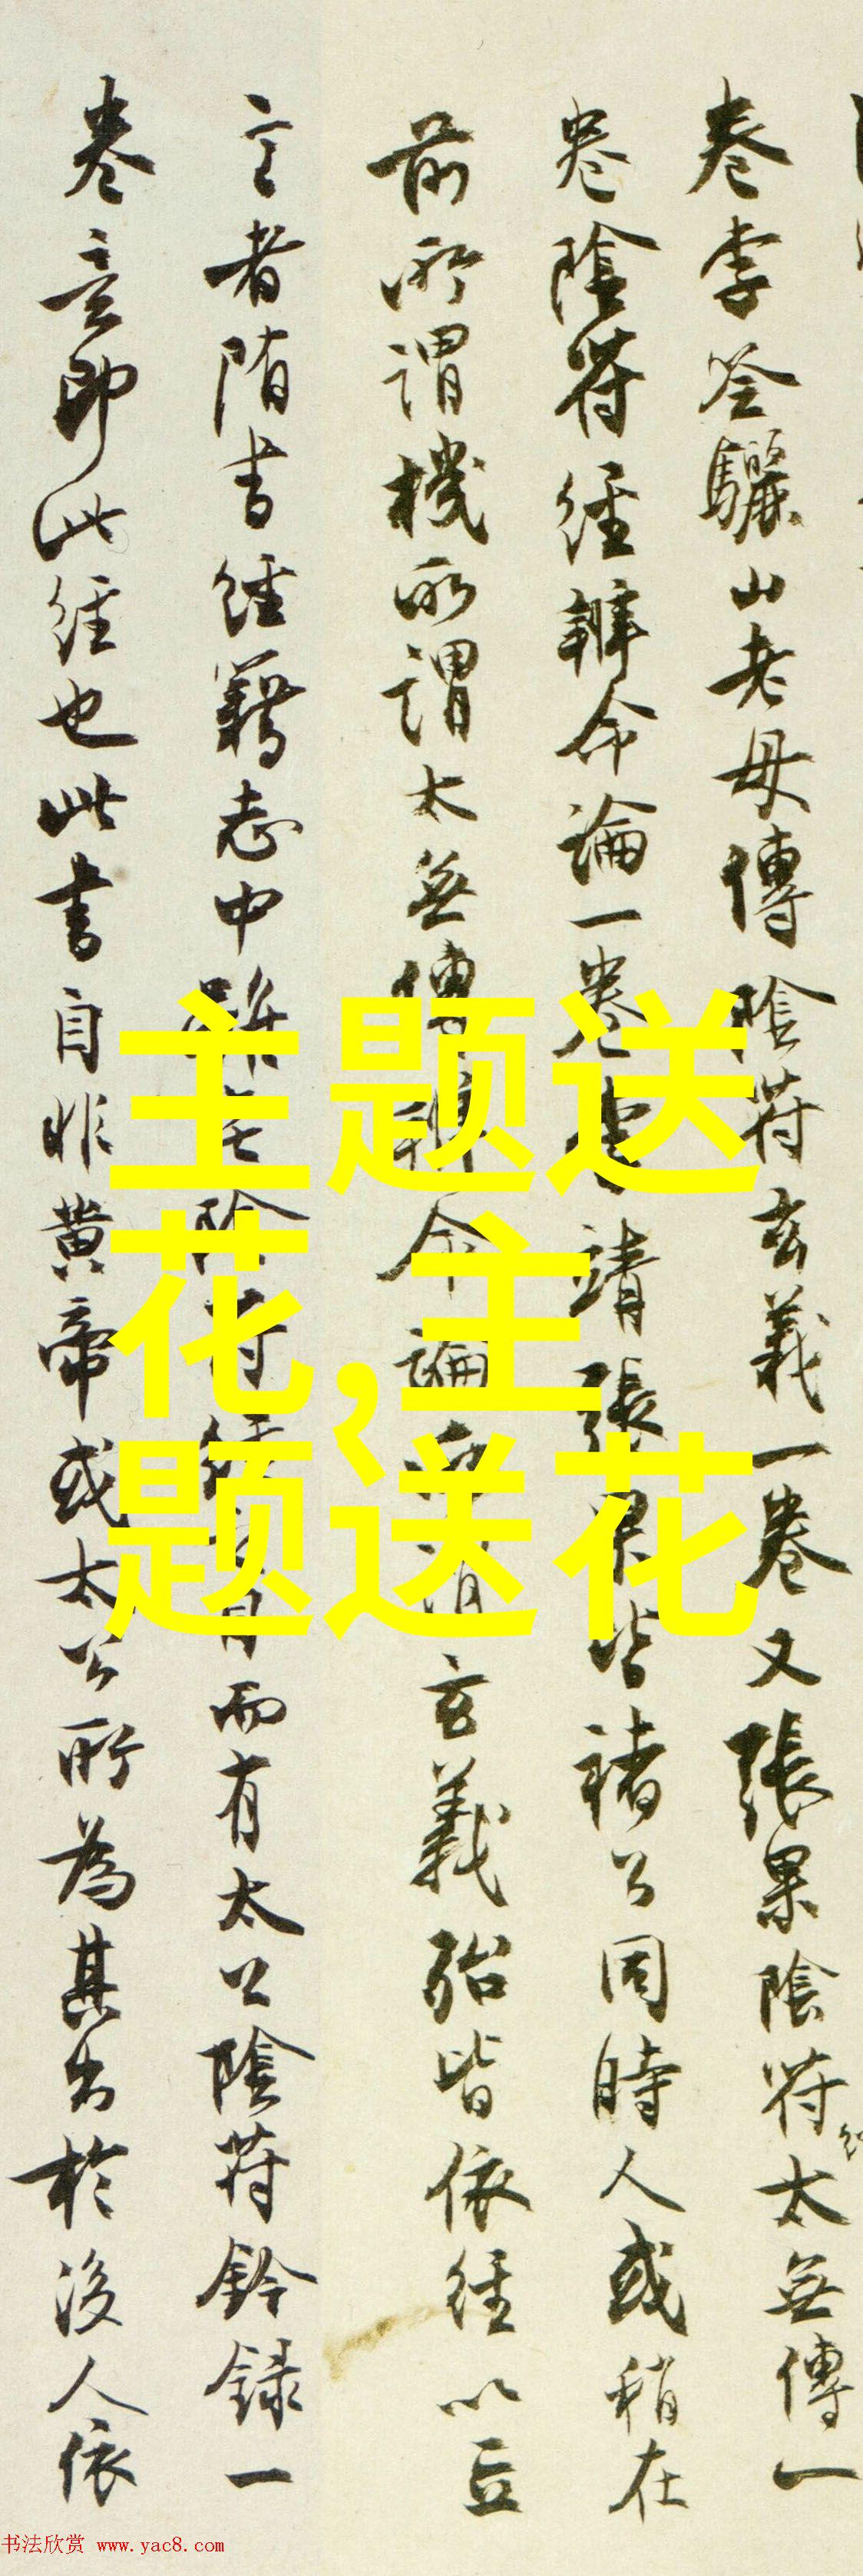 卷李筌驪山老母傳陰符玄義一卷又張果陰符太無傳一
卷陰符經辨命論一卷 靖張果皆褚公同時人或稍在
前所謂機所謂太無傳辨命論 玄義殆皆依經以立
言者隋書經籍志中雖無陰符經 而有太公陰符鈐録一
卷意即此經也此書自非黄帝或太公所為其出於後人依
主题送
花,主
题送花
书法欣赏 www.yac8.com